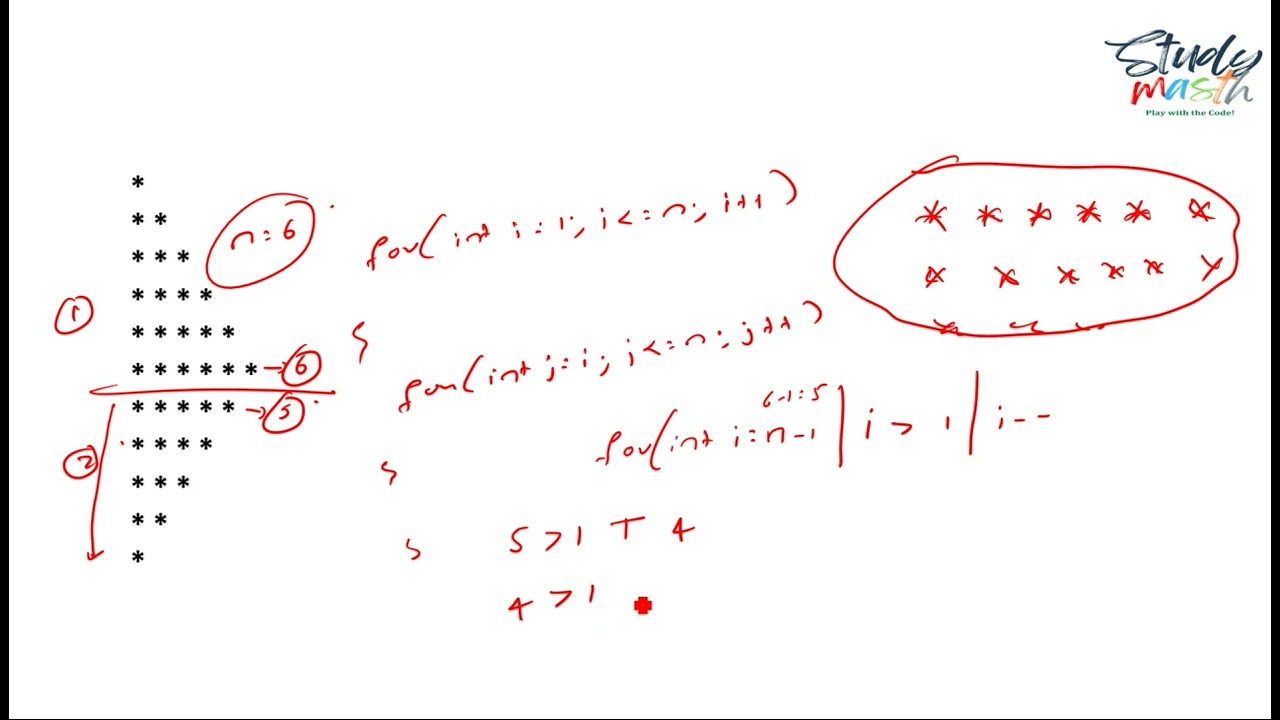 Study
masth
Play with the Code!
*
* *
* * *
* * * *
* * * * *
* * * * * * → 6
* * * * * → 5
* * * *
* * *
* *
*
1
2
n=6
for(int i=1; i<=n; i++)
for(int j=i; j<=n; j++)
6-1=5
for(int i=n-1 | i > 1 | i--
5 > 1 T 4
4 > 1
* * * * * *
* * * * * *